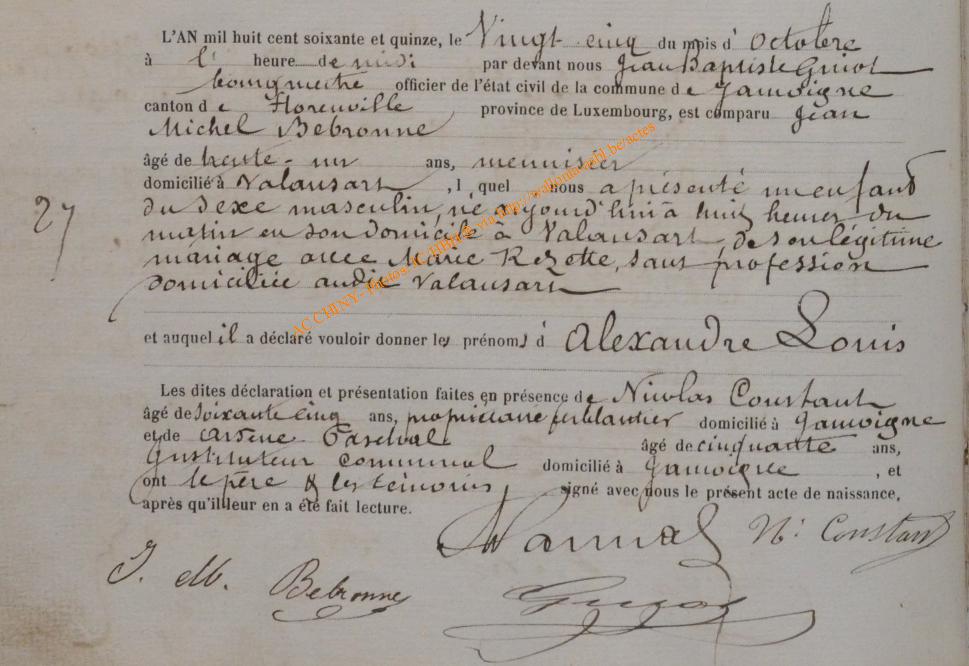 L'AN mil huit cent soixante et quinze, le Vingt cinq du mois d' Octobre
à l' heure de midi par devant nous Jean Baptiste Guiot
bourgmestre officier de l'état civil de la commune de Jamoigne
canton de Florenville province de Luxembourg, est comparu Jean
Michel Bebronne
âgé de trente-un ans, menuisier
domicilié à Valansart, l quel nous a présenté un enfant
du sexe masculin, né aujourd'hui à huit heures du
matin en son domicile à Valansart, de son légitime
mariage avec Marie Rezette, sans profession
domiciliée audit Valansart
27
et auquel il a déclaré vouloir donner les prénoms d' Alexandre Louis
Les dites déclaration et présentation faites en présence de Nicolas Constant
âgé de soixante cinq ans, propriétaire domicilié à Jamoigne
et de Arsène âgé de cinquante ans,
Instituteur communal domicilié à Jamoigne, et
ont le père & les témoins signé avec nous le présent acte de naissance,
après qu'il leur en a été fait lecture.
N. Constant
J. M. Bebronne
AC CHINY - Photos via http://walloniascehl.be/actes